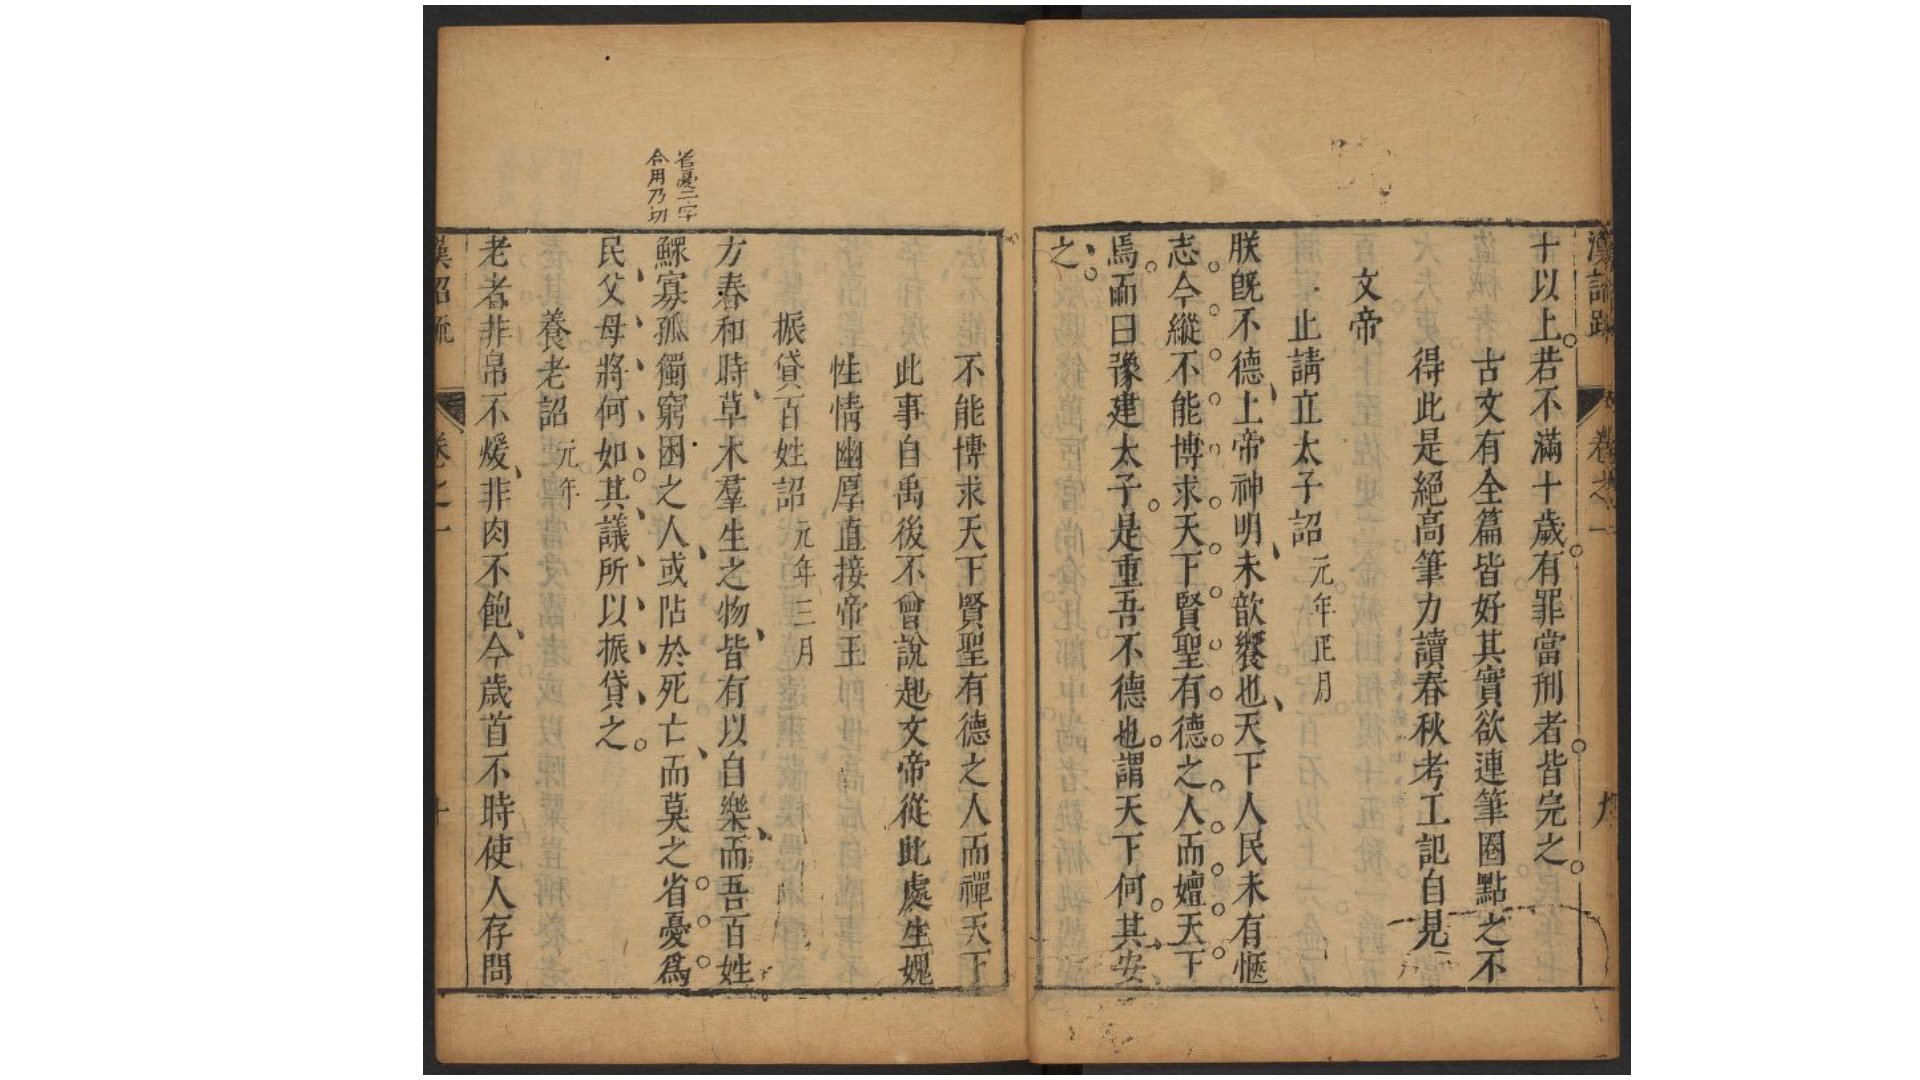 漢詔疏
卷之一
九
十以上若不滿十歲有罪當刑者皆完之
古文有全篇皆好其實欲連筆圈點之不
得此是絕高筆力讀春秋考工記自見
文帝
止請立太子詔 元年正月
朕旣不德上帝神明未歆饗也天下人民未有愜
志今縱不能博求天下賢聖有德之人而嬗天下
焉而曰豫建太子是重吾不德也謂天下何其安
之
不能博求天下賢聖有德之人而禪天下
此事自禹後不會說起文帝從此處生媿
性情幽厚直接帝王
振貸百姓詔 元年三月
方春和時草木羣生之物皆有以自樂而吾百姓
鰥寡孤獨窮困之人或阽於死亡而莫之省憂爲
省憂二字
合用乃切
民父母將何如其議所以振貸之
養老詔 元年
老者非帛不煖非肉不飽今歲首不時使人存問
漢詔疏
卷之一
十